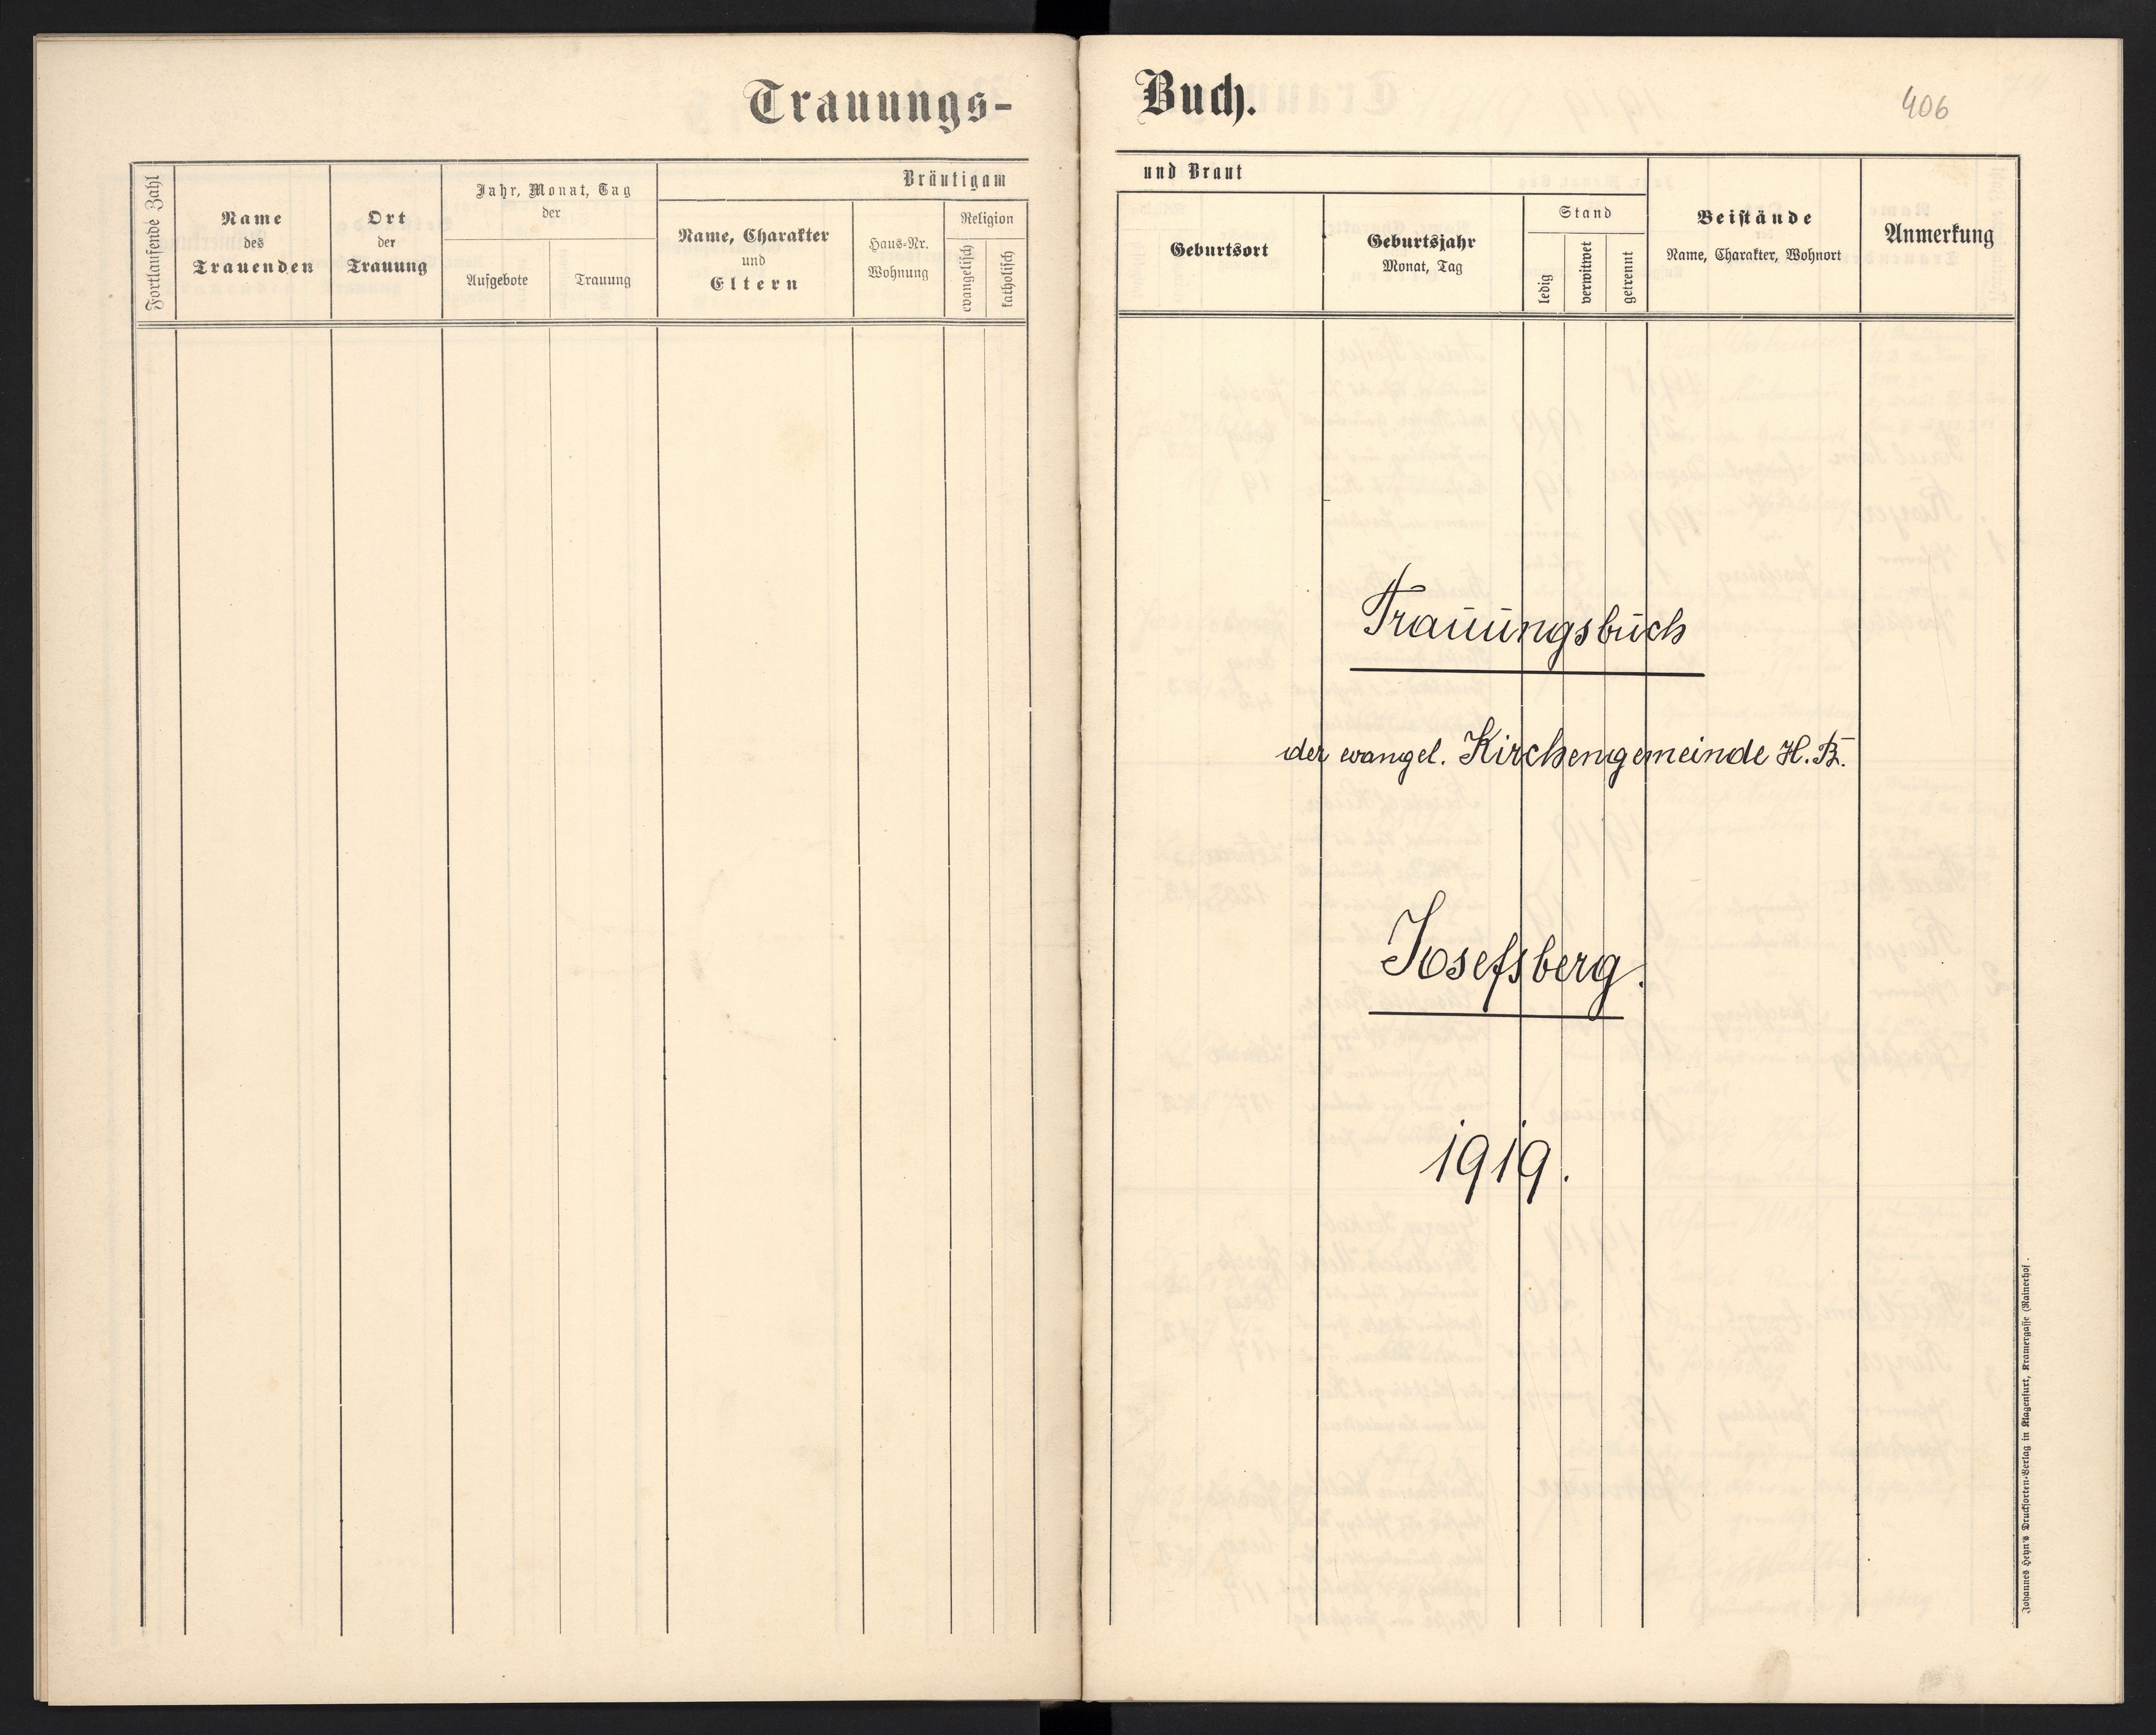 Trauungs-
Fortlaufende Zahl
Name
des
Trauenden
Ort
der
Trauung
Jahr, Monat, Tag
der
Aufgebote
Trauung
Bräutigam
Name, Charakter
und
Eltern
Haus-Nr.
Wohnung
Religion
evangelisch
katholisch
Buch.
406
und Braut
Geburtsort
Geburtsjahr
Monat, Tag
Stand
ledig
verwitwet
getrennt
Beistände
Name, Charakter, Wohnort
Anmerkung
Trauungsbuch
der evangel. Kirchengemeinde H. B.
Josefsberg.
1919.
Johannes Heyn's Drucksorten-Verlag in Klagenfurt, Kramergasse (Rainerhof).